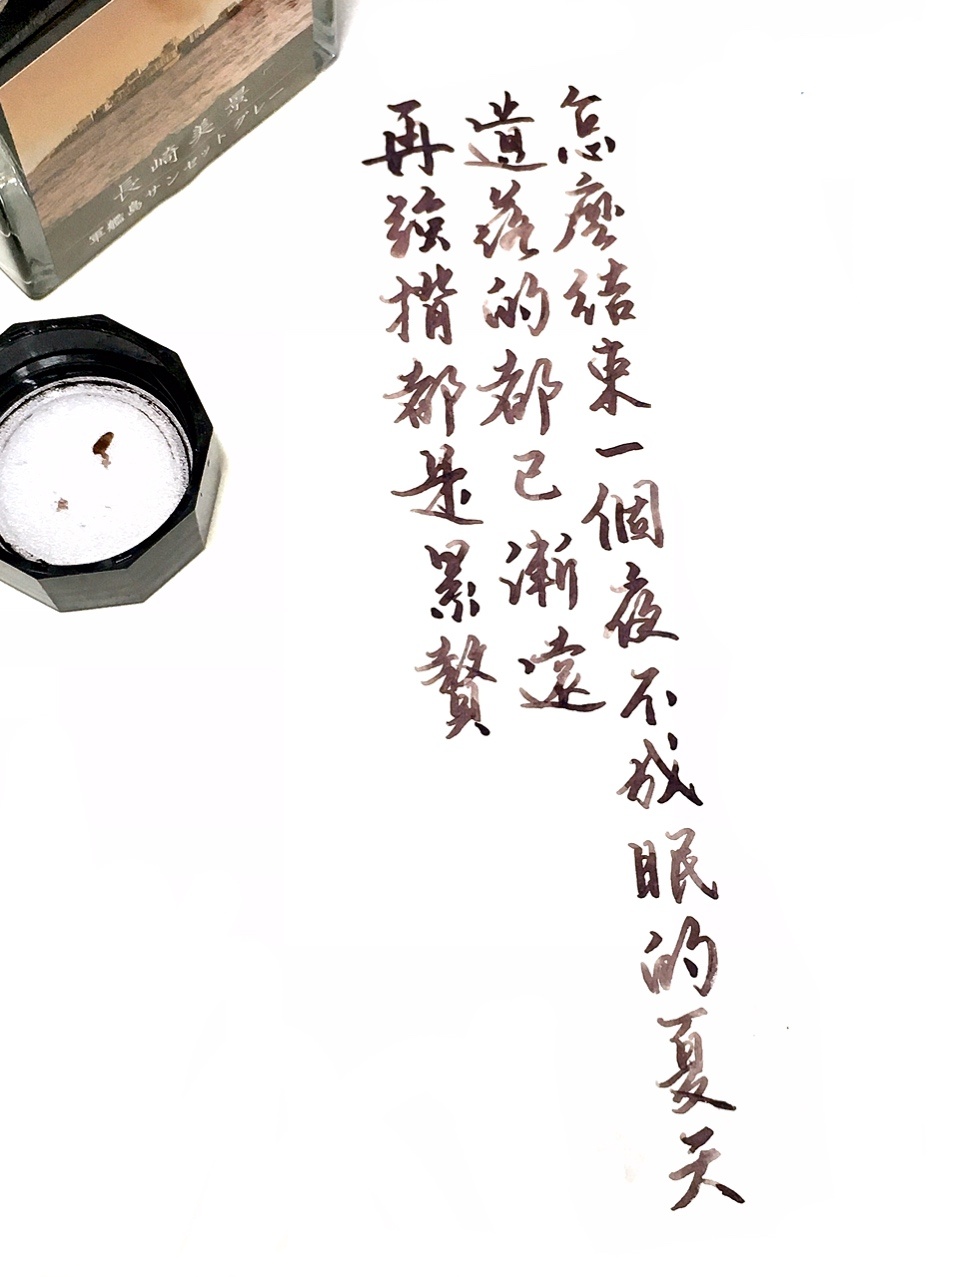 怎麼結束一個夜不成眠的夏天
遺落的都已漸遠
再強揹都是累贅
長崎美景
軍艦島サンセットグレー